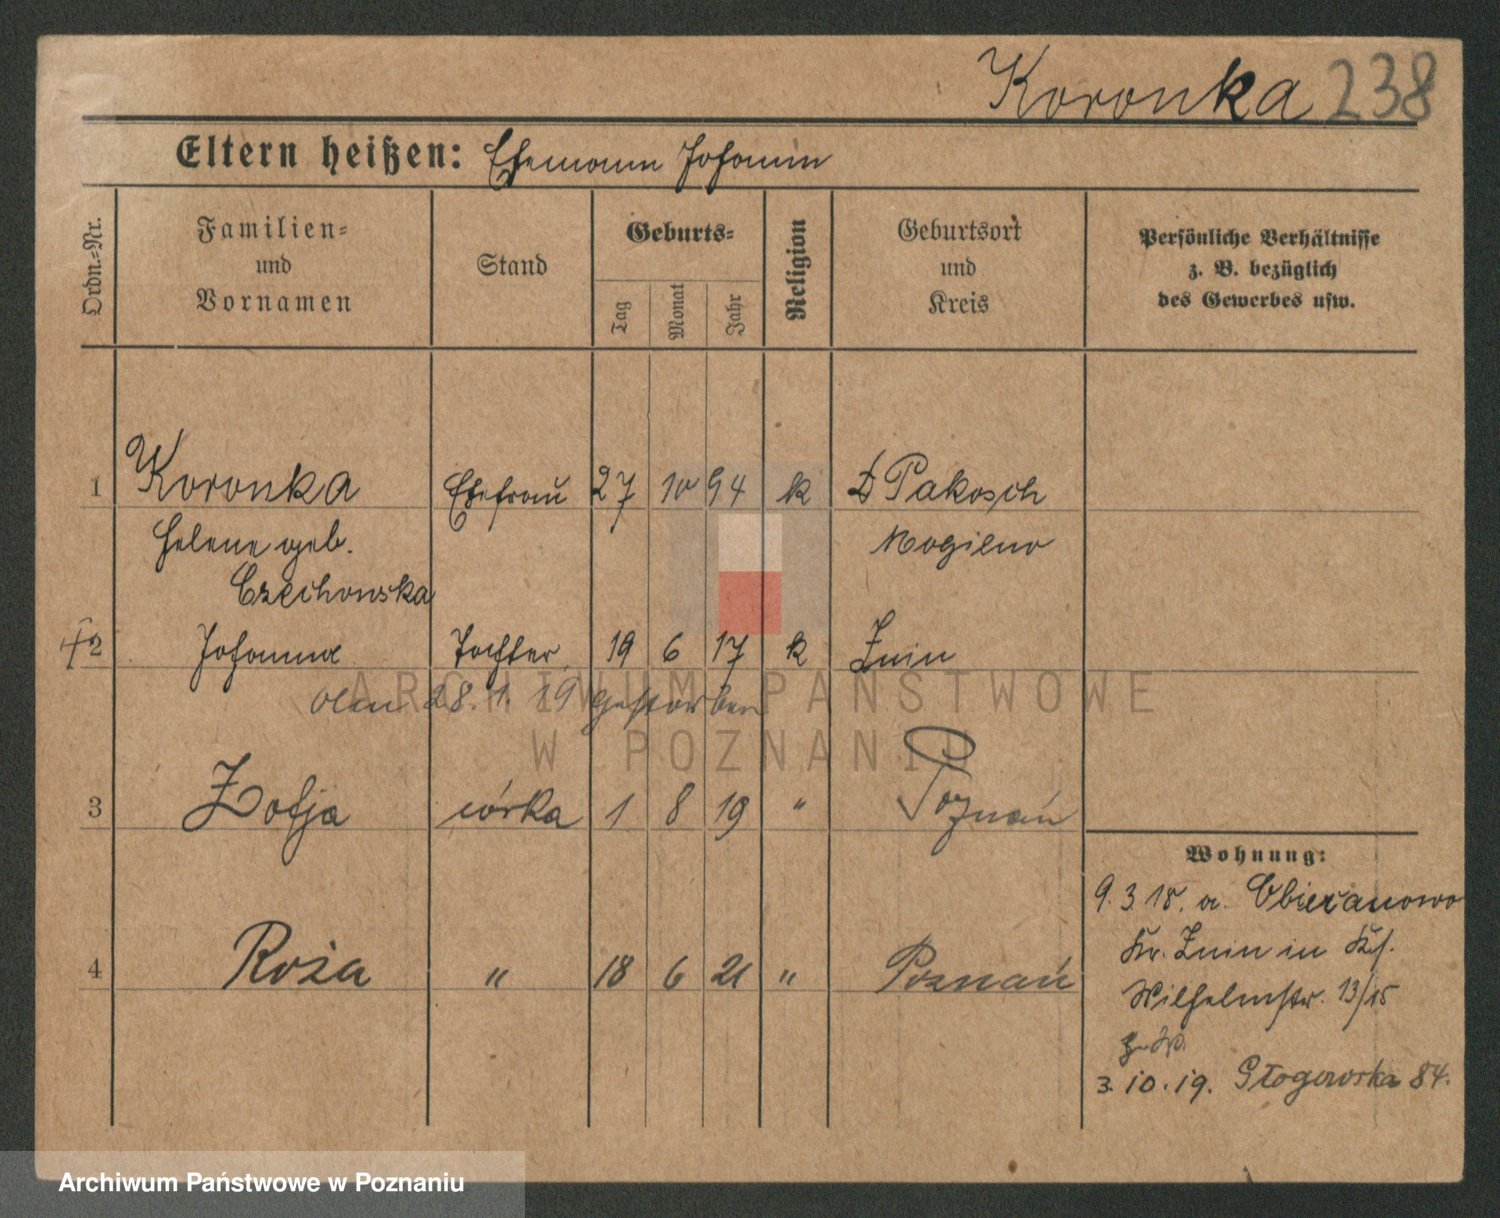 Koronka 238
Eltern heißen: Ehemann Johann
Ordn.-Nr.
Familien- und Vornamen
Stand
Geburts-
Tag
Monat
Jahr
Religion
Geburtsort und Kreis
Persönliche Verhältnisse
z. B. bezüglich
des Gewerbes usw.
1 Koronka Ehefrau 27 10 94 k Pakosch
Helene geb. Mogilno
Czechowska
2 Johanna Tochter 19 6 17 k Znin
am 28.1.19 gestorben
3 Zofja córka 1 8 19 " Poznań
Wohnung:
9.3.18. a.
Kr. Znin in
4 Róża " 18 6 21 " Poznań
Wilhelmstr. 13/15
3.10.19. Głogowska 84.
ARCHIWUM PAŃSTWOWE
W POZNANIU
Archiwum Państwowe w Poznaniu